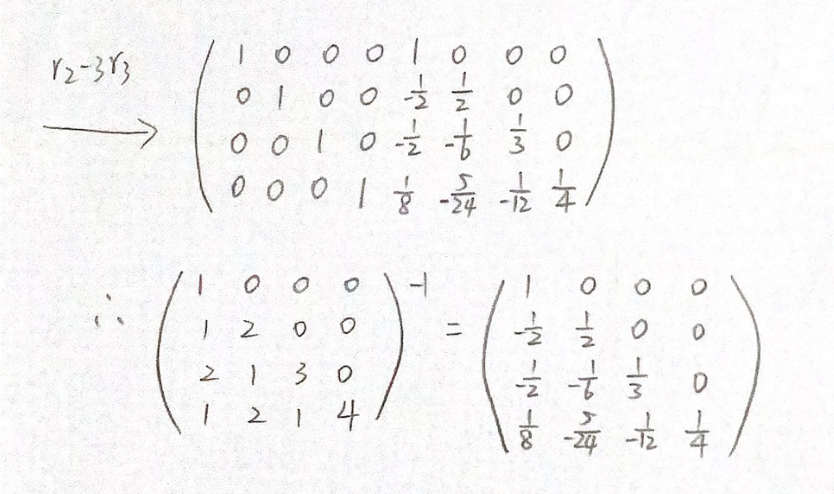 r₂-3r₃ → ( 1 0 0 0 1 0 0 0
0 1 0 0 -1/2 1/2 0 0
0 0 1 0 -1/2 -1/6 1/3 0
0 0 0 1 1/8 -5/24 -1/12 1/4 )
∴ ( 1 0 0 0 )⁻¹ = ( 1 0 0 0
1 2 0 0   -1/2 1/2 0 0
2 1 3 0   -1/2 -1/6 1/3 0
1 2 1 4   1/8 -5/24 -1/12 1/4 )